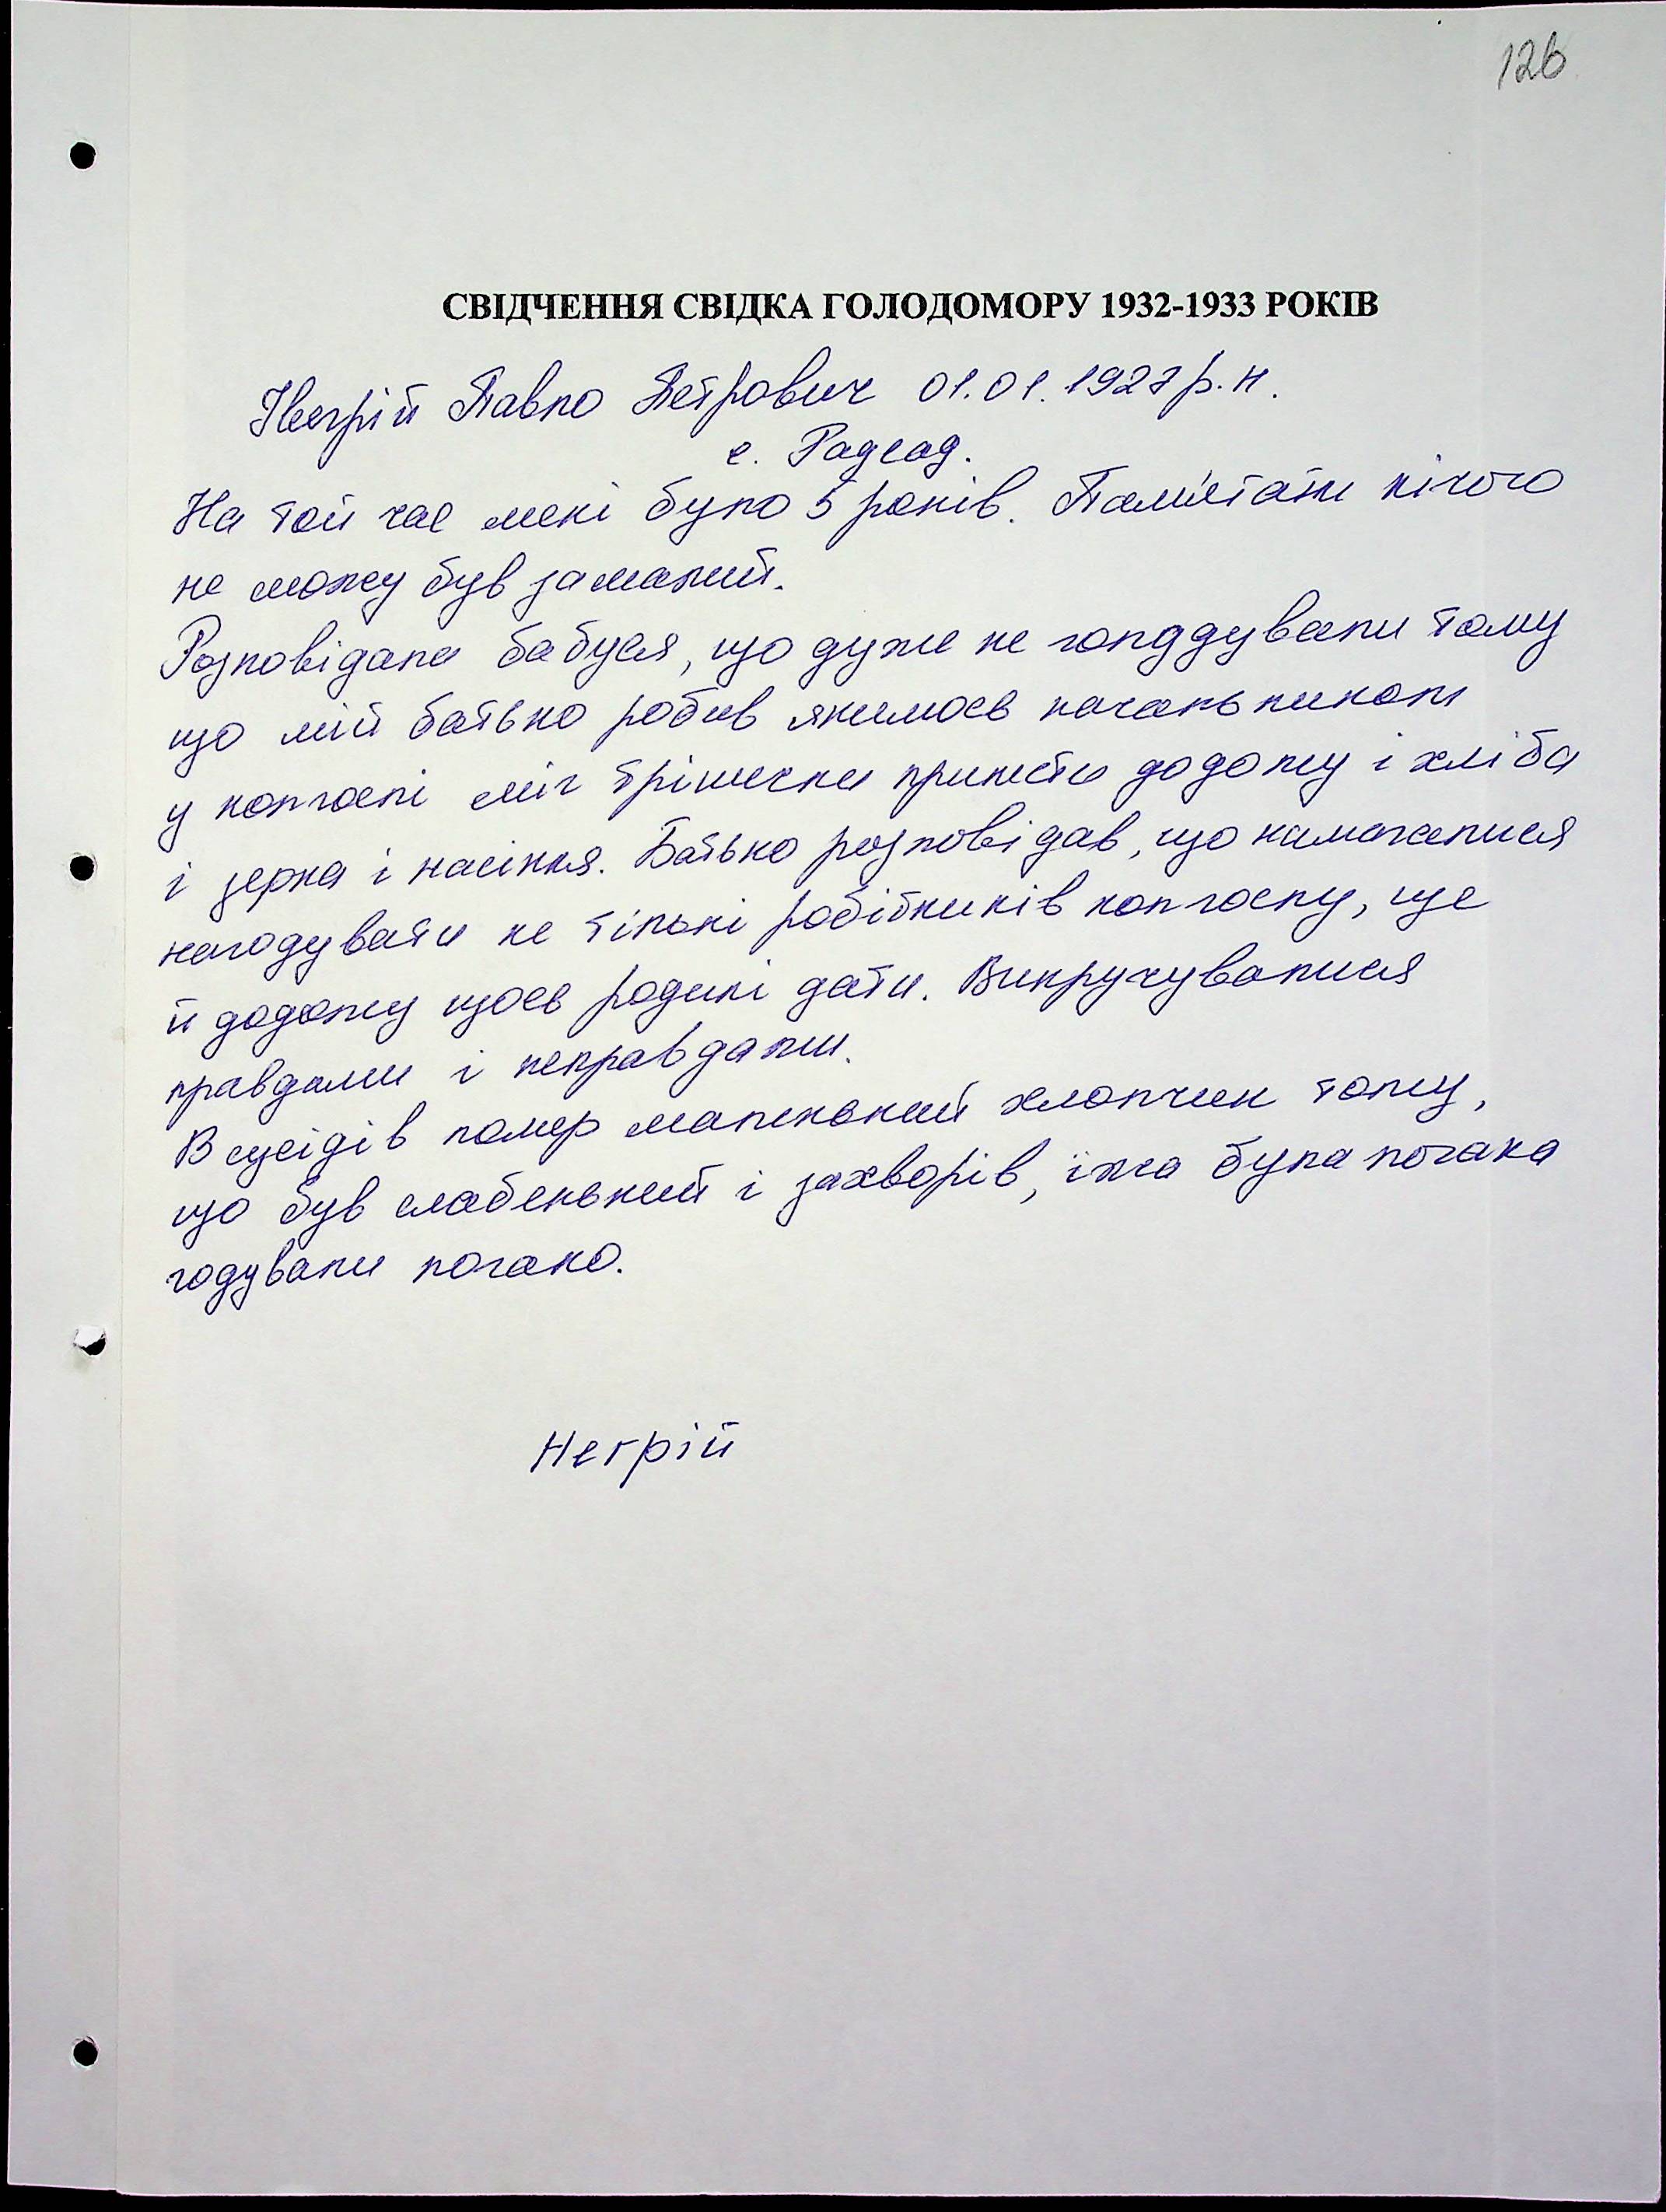 126
СВІДЧЕННЯ СВІДКА ГОЛОДОМОРУ 1932-1933 РОКІВ
Негрій Павло Петрович 01.01.1927 р.н.
с. Радсад.
На той час мені було 5 років. Пам'ятати нічого
не можу був замалий.
Розповідала бабуся, що дуже не голодували тому
що мій батько робив якимось начальником
у колгоспі міг трішечки принести додому і хліба
і зерна і насіння. Батько розповідав, що намагалися
нагодувати не тількі робітників колгоспу, ще
й додому щось родині дати. Викручувалися
правдами і неправдами.
В сусідів помер маленький хлопчик тому,
що був слабенький і захворів, їжа була погана
годували погано.
Негрій